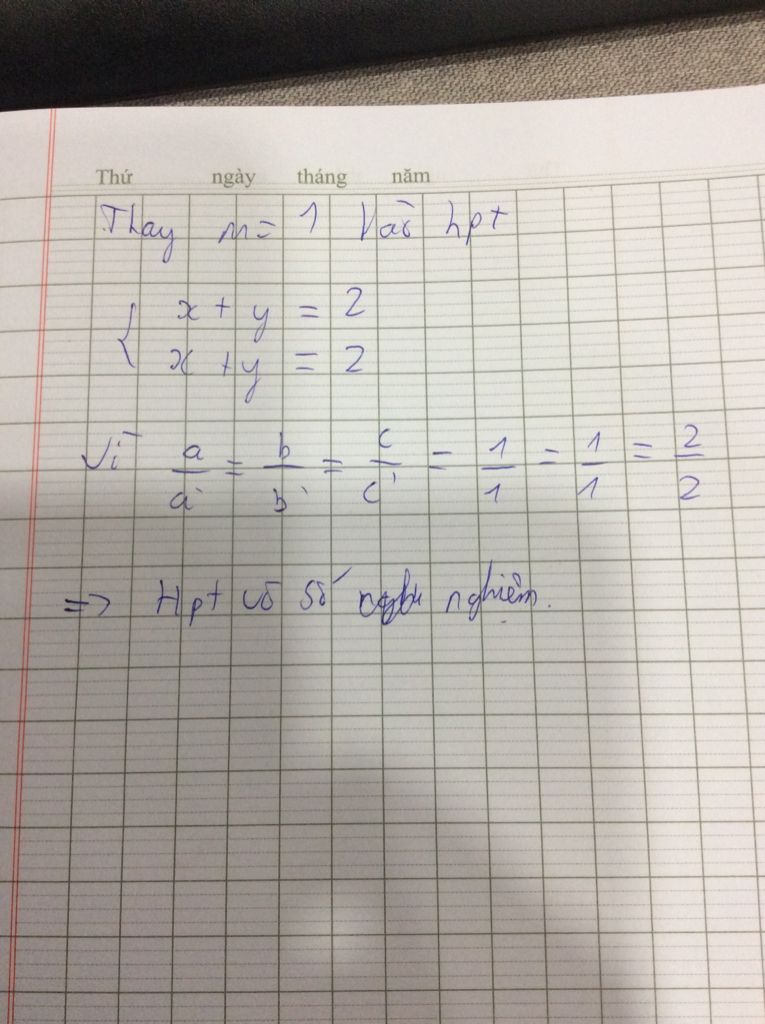 Thứ ngày tháng năm
Thay m = 1 Vào hpt
{ x + y = 2
x + y = 2
Vì a/a' = b/b' = c/c' = 1/1 = 1/1 = 2/2
=> Hpt vô số nghiệm.